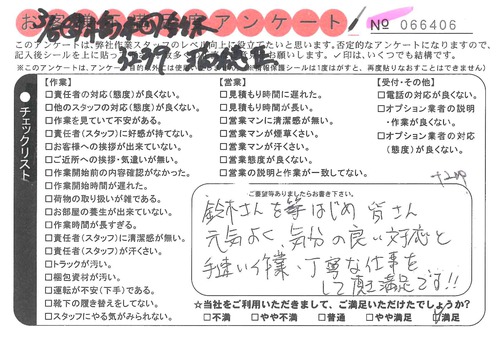 アンケート
No 066406
このアンケートは、弊社作業スタッフのレベル向上に役立てたいと思います。否定的なアンケートになりますので、
記入後シールを上に貼っ
お願いします。✓印は、いくつでも結構です。
●チェックリスト
【作業】
□責任者の対応(態度)が良くない。
□他のスタッフの対応(態度)が良くない。
□作業を見ていて不安がある。
□責任者(スタッフ)に好感が持てない。
□お客様への挨拶が出来ていない。
□ご近所への挨拶・気遣いが無い。
□作業開始前の内容確認がなかった。
□作業開始時間が遅れた。
□荷物の取り扱いが雑である。
□お部屋の養生が出来ていない。
□作業時間が長すぎる。
□責任者(スタッフ)に清潔感が無い。
□責任者(スタッフ)が汗くさい。
□トラックが汚い。
□梱包資材が汚い。
□運転が不安(下手)である。
□靴下の履き替えをしてない。
□スタッフにやる気がみられない。
【営業】
□見積もり時間に遅れた。
□見積もり時間が長い。
□営業マンに清潔感が無い。
□営業マンが煙草くさい。
□営業マンが汗くさい。
□営業態度が良くない。
□営業の説明と作業が一致してない。
【受付・その他】
□電話の対応が良くない。
□オプション業者の説明
・作業が良くない。
□オプション業者の対応
(態度)が良くない。
ご要望等ありましたらお書き下さい。
鈴木さんを等はじめ皆さん
元気よく、気分の良い対応と
手速い作業、丁寧な仕事を
して頂き満足です!!
☆当社をご利用いただきまして、ご満足いただけたでしょうか?
□不満 □やや不満 □普通 □やや満足 ☑満足